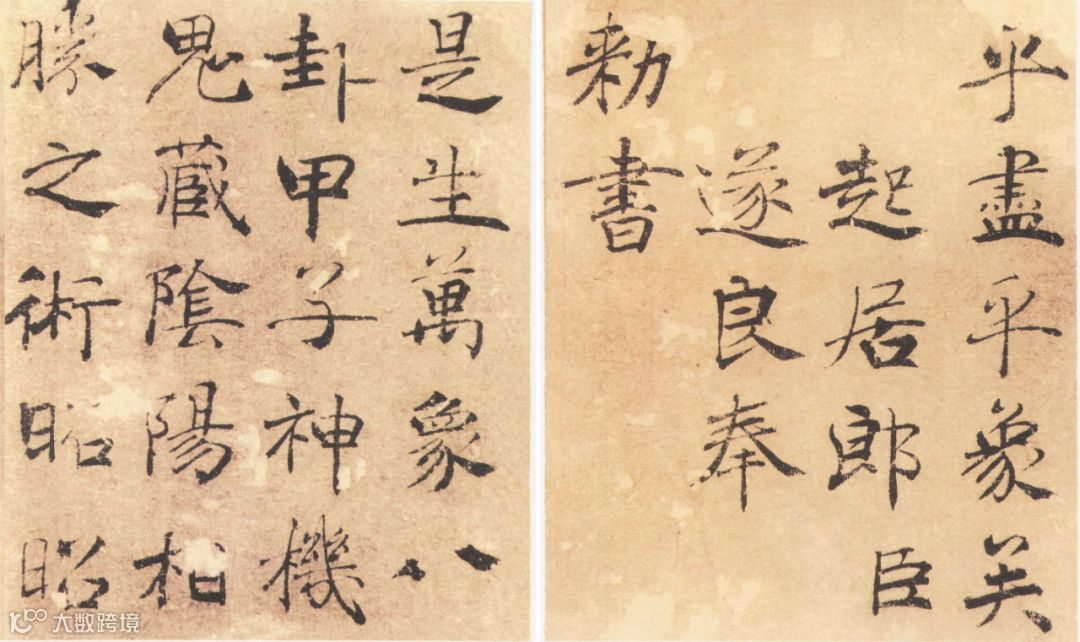 是生萬象八
卦甲子神機
鬼藏陰陽相
勝之術昭昭
乎盡乎象矣
起居郎臣
遂良奉
勅書
大数跨境